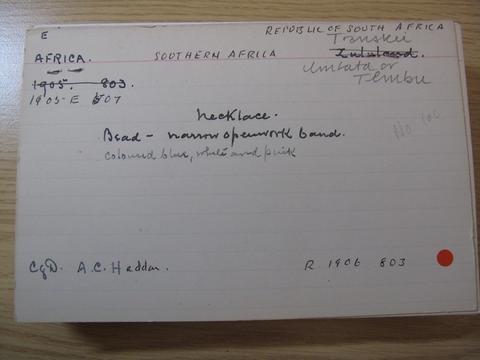 E
REPUBLIC OF SOUTH AFRICA
Transkei
AFRICA. SOUTHERN AFRICA Zululand.
Umtata or
Tembu
1905. 803.
1905-E 507
Necklace.
Bead - narrow openwork band.
No 106
coloured blue, white and pink
CgD. A.C. Haddon.
R 1906 803